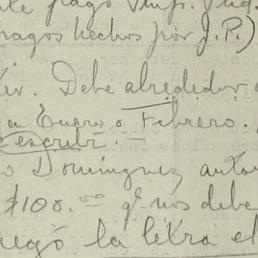 pagó
pagos hechos por J.P.)
Debe alrededor
en Enero o Febrero.
escribí. —
o Domínguez, autor
$100.⁰⁰ = q' nos debe
la letra el